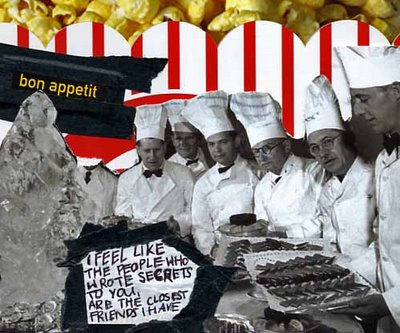 bon appetit
I FEEL LIKE
THE PEOPLE WHO
WROTE SECRETS
TO YOU,
ARE THE CLOSEST
FRIENDS I HAVE